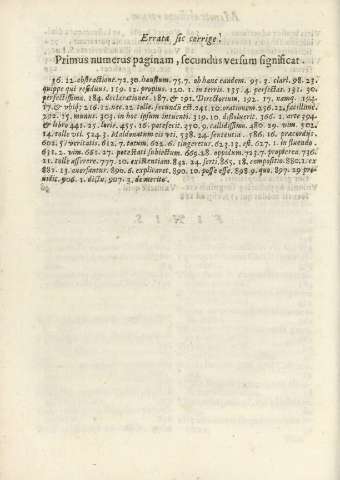 Errata sic corrige.
Primus numerus paginam, secundus versum significat.
36. 12. abstractione. 72. 30. haustum. 75. 7. ob hanc eandem. 95. 2. clari. 98. 23.
quippe qui residuus. 119. 12. propius. 120. 1. in terris. 135. 4. perfectas. 181. 30.
perfectissima. 184. declarationes. 187. & 191. Directorium. 192. 17. namq. 194.
17. & 216. 12. nec. 22. tolle. secundū est. 241. 10. orationem. 256. 22. facillimè.
292. 15. munus. 303. in hoc ipsum intuenti. 319. 10. distulerit. 366. 1. arte 394.
& libro 441. 25. loris. 455. 16. patefecit. 250. 9. callidissimo. 480. 29. vim. 502.
14. tolle vis. 524. 3. 538. 24. sententia. 586. 16. præcordijs.
602. 5. veritatis. 612. 7. totum. 622. 6. tingeretur. 627. 13. est. 627. 1. in fluendo.
631. 2. vim. 651. 27. potestati subiectum. 669. 28. oppidum. 713. 7. propterea. 736.
21. tolle asserere. 777. 10. existentiam. 842. 24. ferti. 865. 18. compositio. 880. 1. ex
881. 13. auersantur. 890. 6. explicaret. 890. 10. posse esse. 898. 9. quo. 897. 29
906. 1. dictu. 907. 3. de merito.